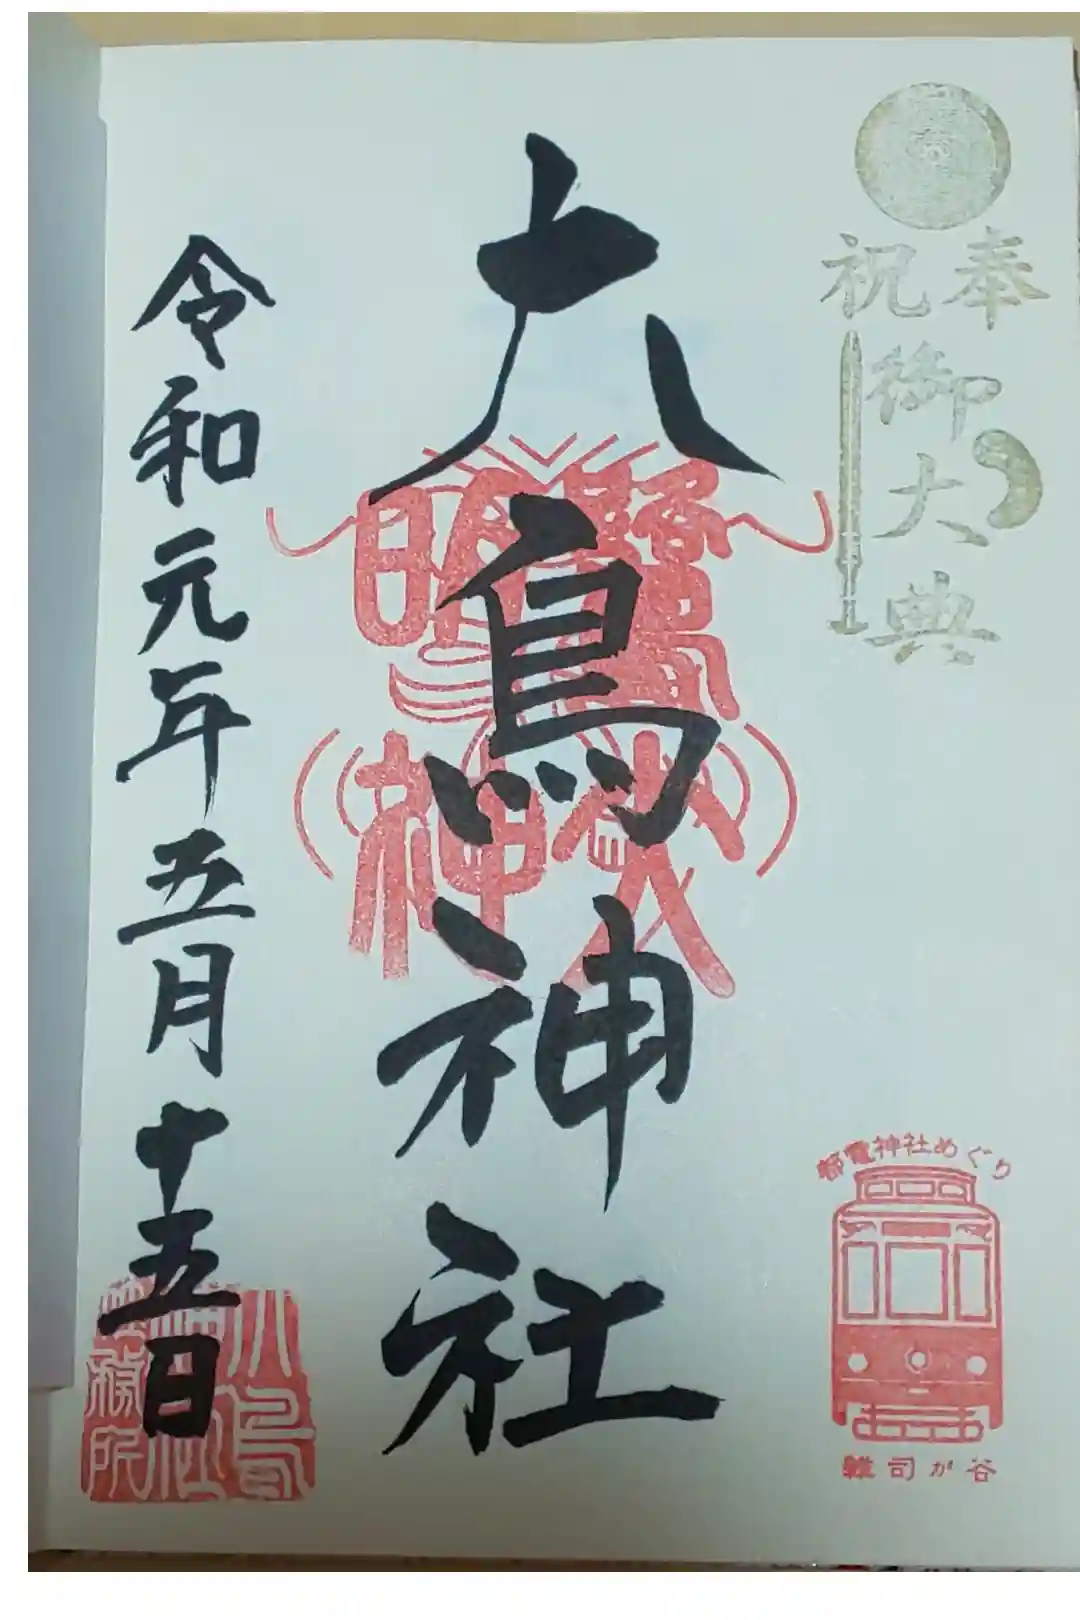 奉祝
御大典
大鳥神社
令和元年五月十五日
都電神社めぐり
雑司が谷